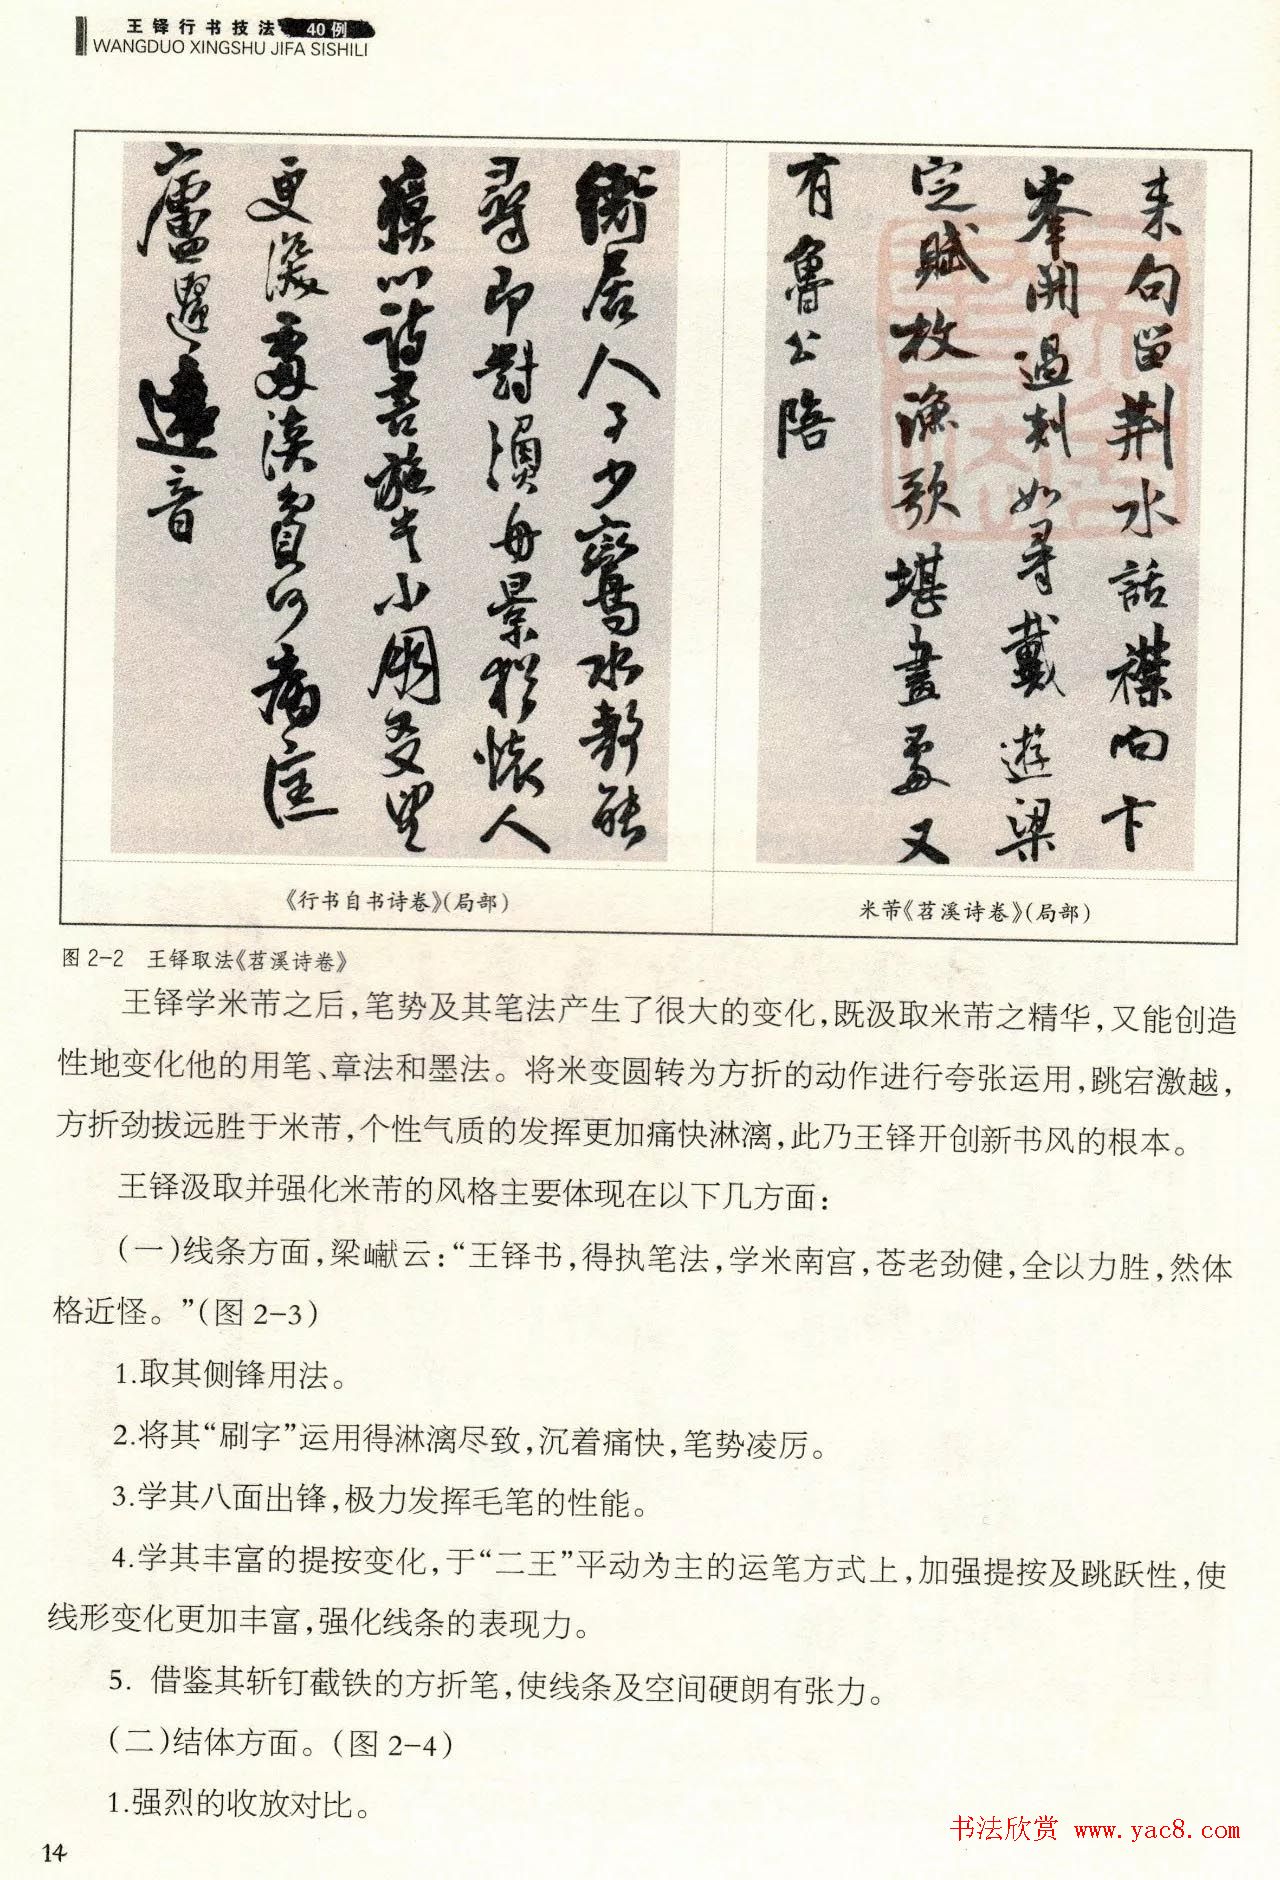 王铎行书技法 40例
WANGDUO XINGSHU JIFA SISHILI
居人子少鸾水静能
寻即对须毋景犹怀人
以诗书施半小开爻望
更深处淡负何病宦
庐遥远音
来句留荆水话襟向卞
峰开过剡如寻戴游梁
定赋枚渔歌堪画处又
有鲁公陪
《行书自书诗卷》(局部)
米芾《苕溪诗卷》(局部)
图 2-2 王铎取法《苕溪诗卷》
王铎学米芾之后,笔势及其笔法产生了很大的变化,既汲取米芾之精华,又能创造
性地变化他的用笔、章法和墨法。将米变圆转为方折的动作进行夸张运用,跳宕激越,
方折劲拔远胜于米芾,个性气质的发挥更加痛快淋漓,此乃王铎开创新书风的根本。
王铎汲取并强化米芾的风格主要体现在以下几方面:
(一)线条方面,梁巘云:“王铎书,得执笔法,学米南宫,苍老劲健,全以力胜,然体
格近怪。”(图 2-3)
1.取其侧锋用法。
2.将其“刷字”运用得淋漓尽致,沉着痛快,笔势凌厉。
3.学其八面出锋,极力发挥毛笔的性能。
4.学其丰富的提按变化,于“二王”平动为主的运笔方式上,加强提按及跳跃性,使
线形变化更加丰富,强化线条的表现力。
5. 借鉴其斩钉截铁的方折笔,使线条及空间硬朗有张力。
(二)结体方面。(图 2-4)
1.强烈的收放对比。
14
书法欣赏 www.yac8.com